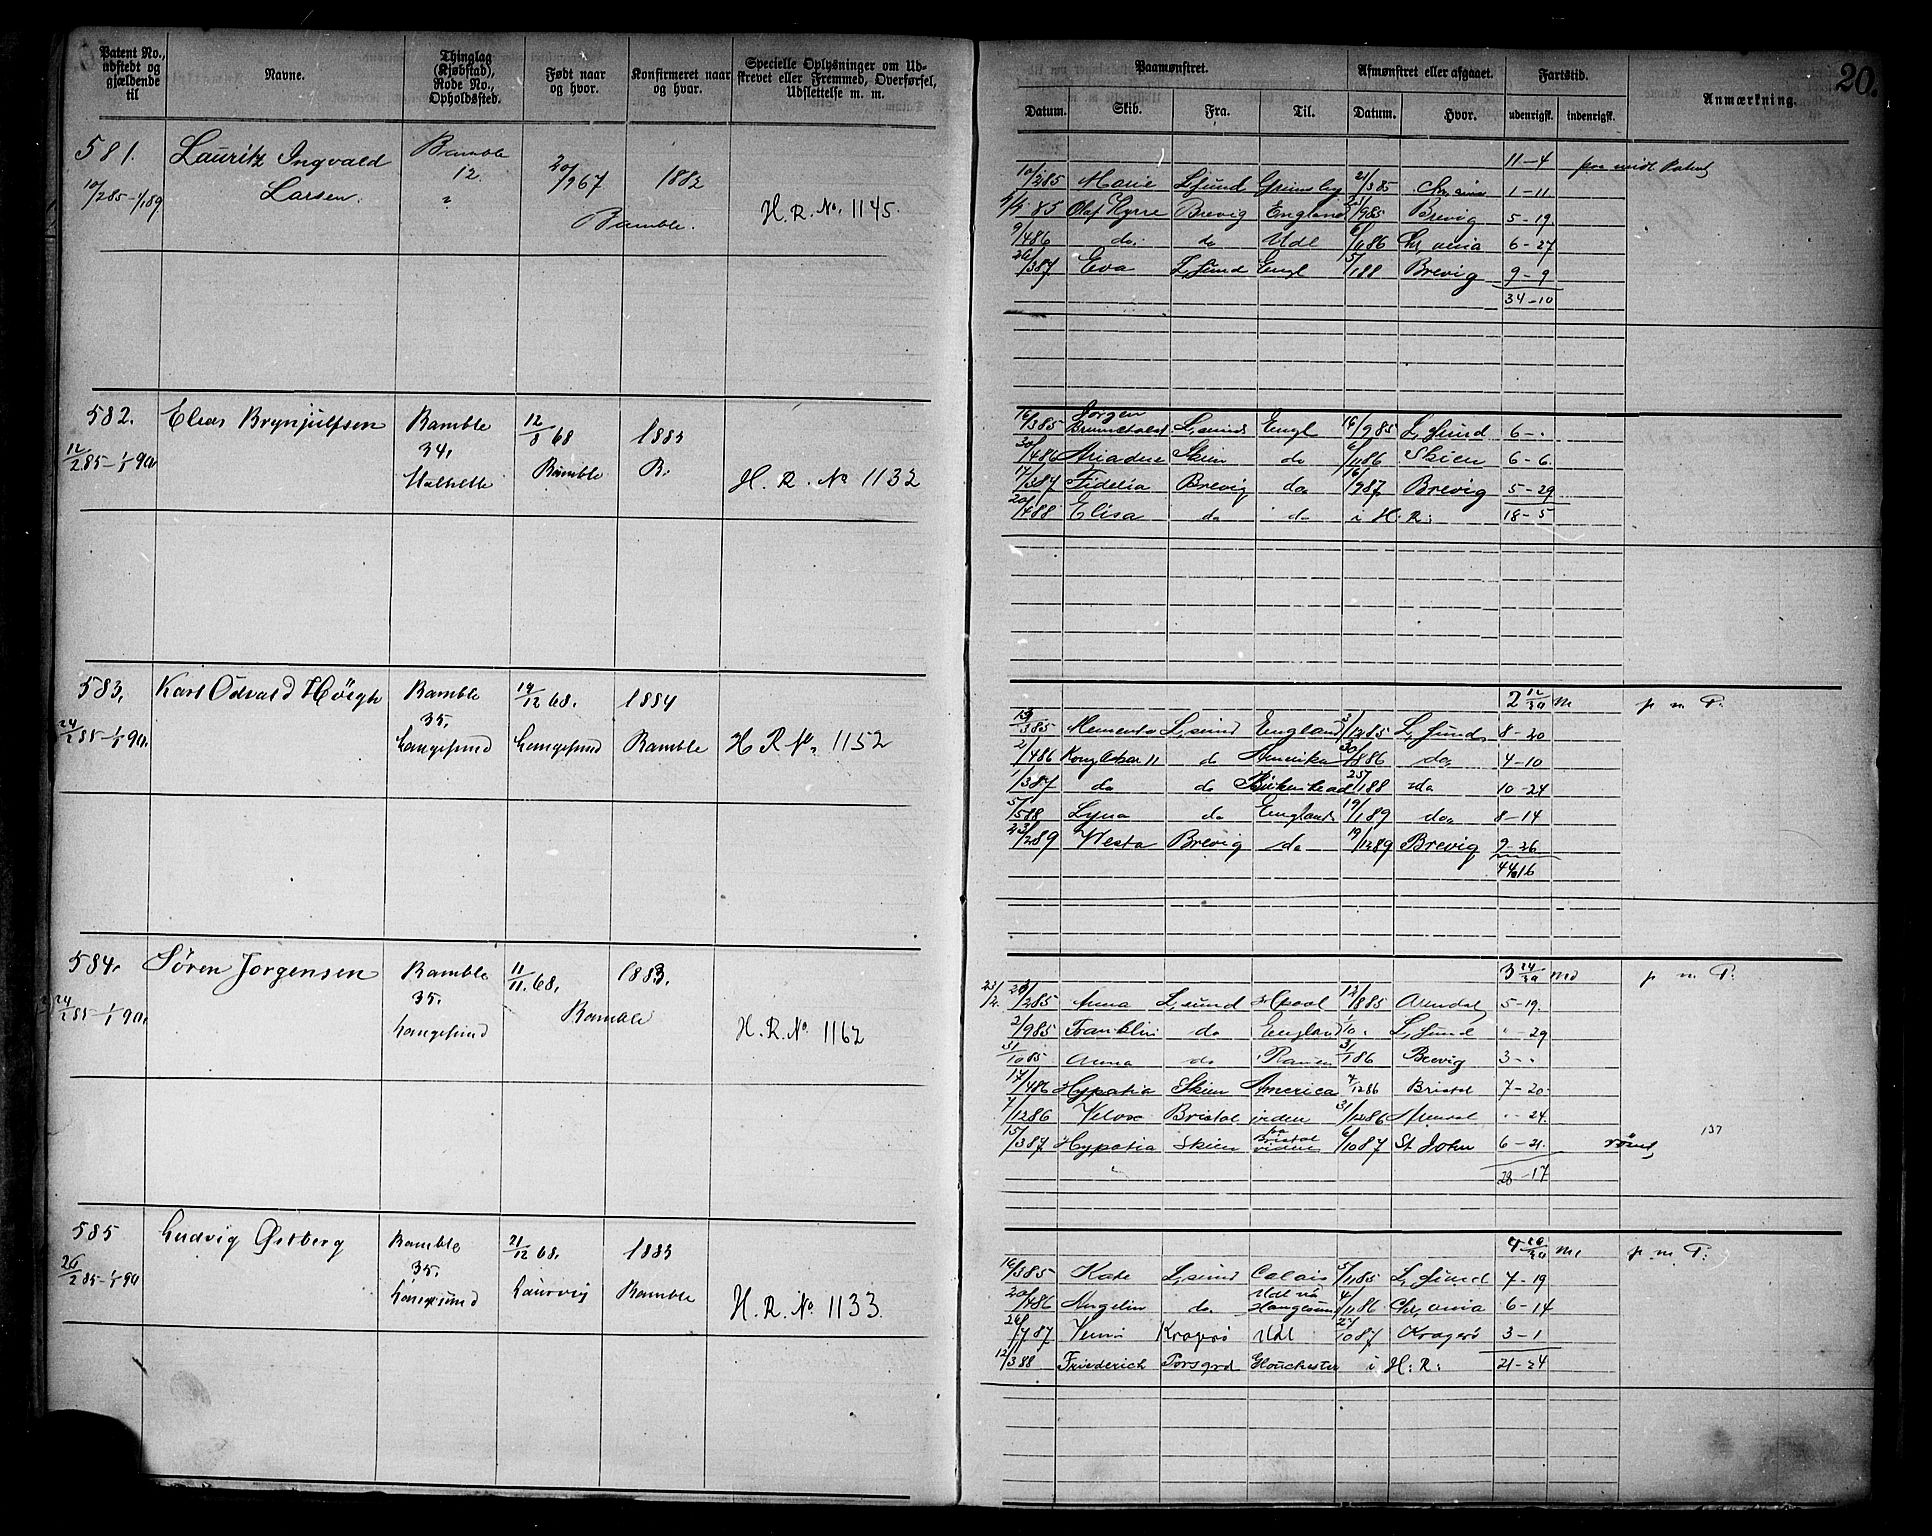 Patent No., udstedt og gjældende til
Navne.
Thinglag (Kjøbstad), Rode No., Opholdssted.
Født naar og hvor.
Konfirmeret naar og hvor.
Specielle Oplysninger om Udskrevet eller Fremmed, Overførsel, Udslettelse m. m.
Paamønstret.
Afmønstret eller afgaaet.
Fartstid.
Anmærkning.
20.
Datum.
Skib.
Fra.
Til.
Datum.
Hvor.
udenrigsk.
indenrigsk.
581.
Lauritz Ingvald
Larsen.
10/2 85 – 1/1 89
Bamble
12.
"
20/9 67
1882
Bamble.
H. R. No. 1145.
11–4
10/2 85 Marie L,sund Grimsby 21/3 85 1–11
85 Olaf Kyrre Brevig England 9 85 Brevig 5–19
9/4 86 do. do Udl 86 Chr,ania 6–27
26/3 87 Eva L,sund Engl 5/1 88 Brevig 9–9
34–10
582.
Elias Brynjulfsen
12/2 85 – 1/1 90
Bamble
34.
12/8 68
Bamble
1883
B.
H. R. No 1132
16/3 85 Jørgen L,sund Engl 16/9 85 L,sund 6–"
30/4 86 Ariadne Skien do 6/11 86 Skien 6–6
17/3 87 Fidelia Brevig do 16/9 87 Brevig 5–29
20/4 88 Elisa do do i H. R. 18–5
583.
Karl Odvald Høegh
24/2 85 – 1/1 90.
Bamble
35.
Langesund
19/12 68.
Langesund
1884
Bamble
H R No 1152
2 12/30 m p m P.
19/3 85 Memento L,sund England 3/12 85 L,sund 8–20
2/4 86 Kong Oskar II do Amerika 86 do 4–10
1/3 87 do do Birkenhead 25/1 88 do 10–24
5/5 88 Lyna do England 19/1 89 do 8–14
23/2 89 Vesta Brevig do 19/12 89 Brevig 9–26
44 16
584.
Søren Jørgensen
24/2 85 – 1/1 90.
Bamble
35.
Langesund
11/11 68.
1883.
Bamble
H. R. No 1162
3 14/30 md p m P.
2 85 Anna L,sund 12/8 85 Arendal 5–19.
2/9 85 Franklin do England L,sund "–29
31/10 85 Anna do 3/1 86 Brevig 3–"
17/4 86 Hypatia Skien America 7/12 86 Bristol 7–20
7/12 86 Velox Bristol inden 31/12 86 Arendal "–24.
15/3 87 Hypatia Skien fra Bristol viden 6/10 87 St John 6–21. rømt, 137
28–17
585
Ludvig Østberg
26/2 85 – 1/1 90
Bamble
35.
Langesund
21/12 68.
Laurvig
1883
Bamble
H. R. No 1133.
4 10/30 m. p m P.
16/3 85 Kate L,sund Calais 5/11 85 L,sund 7–19
20/4 86 Angelin do Udl via Haugesund 4/11 86 Chr,ania 6–14
26/7 87 Kragerø Udl 27/10 87 Kragerø 3–1
12/3 88 Friederich Porsgrd Glouchester i H: R: 21–24